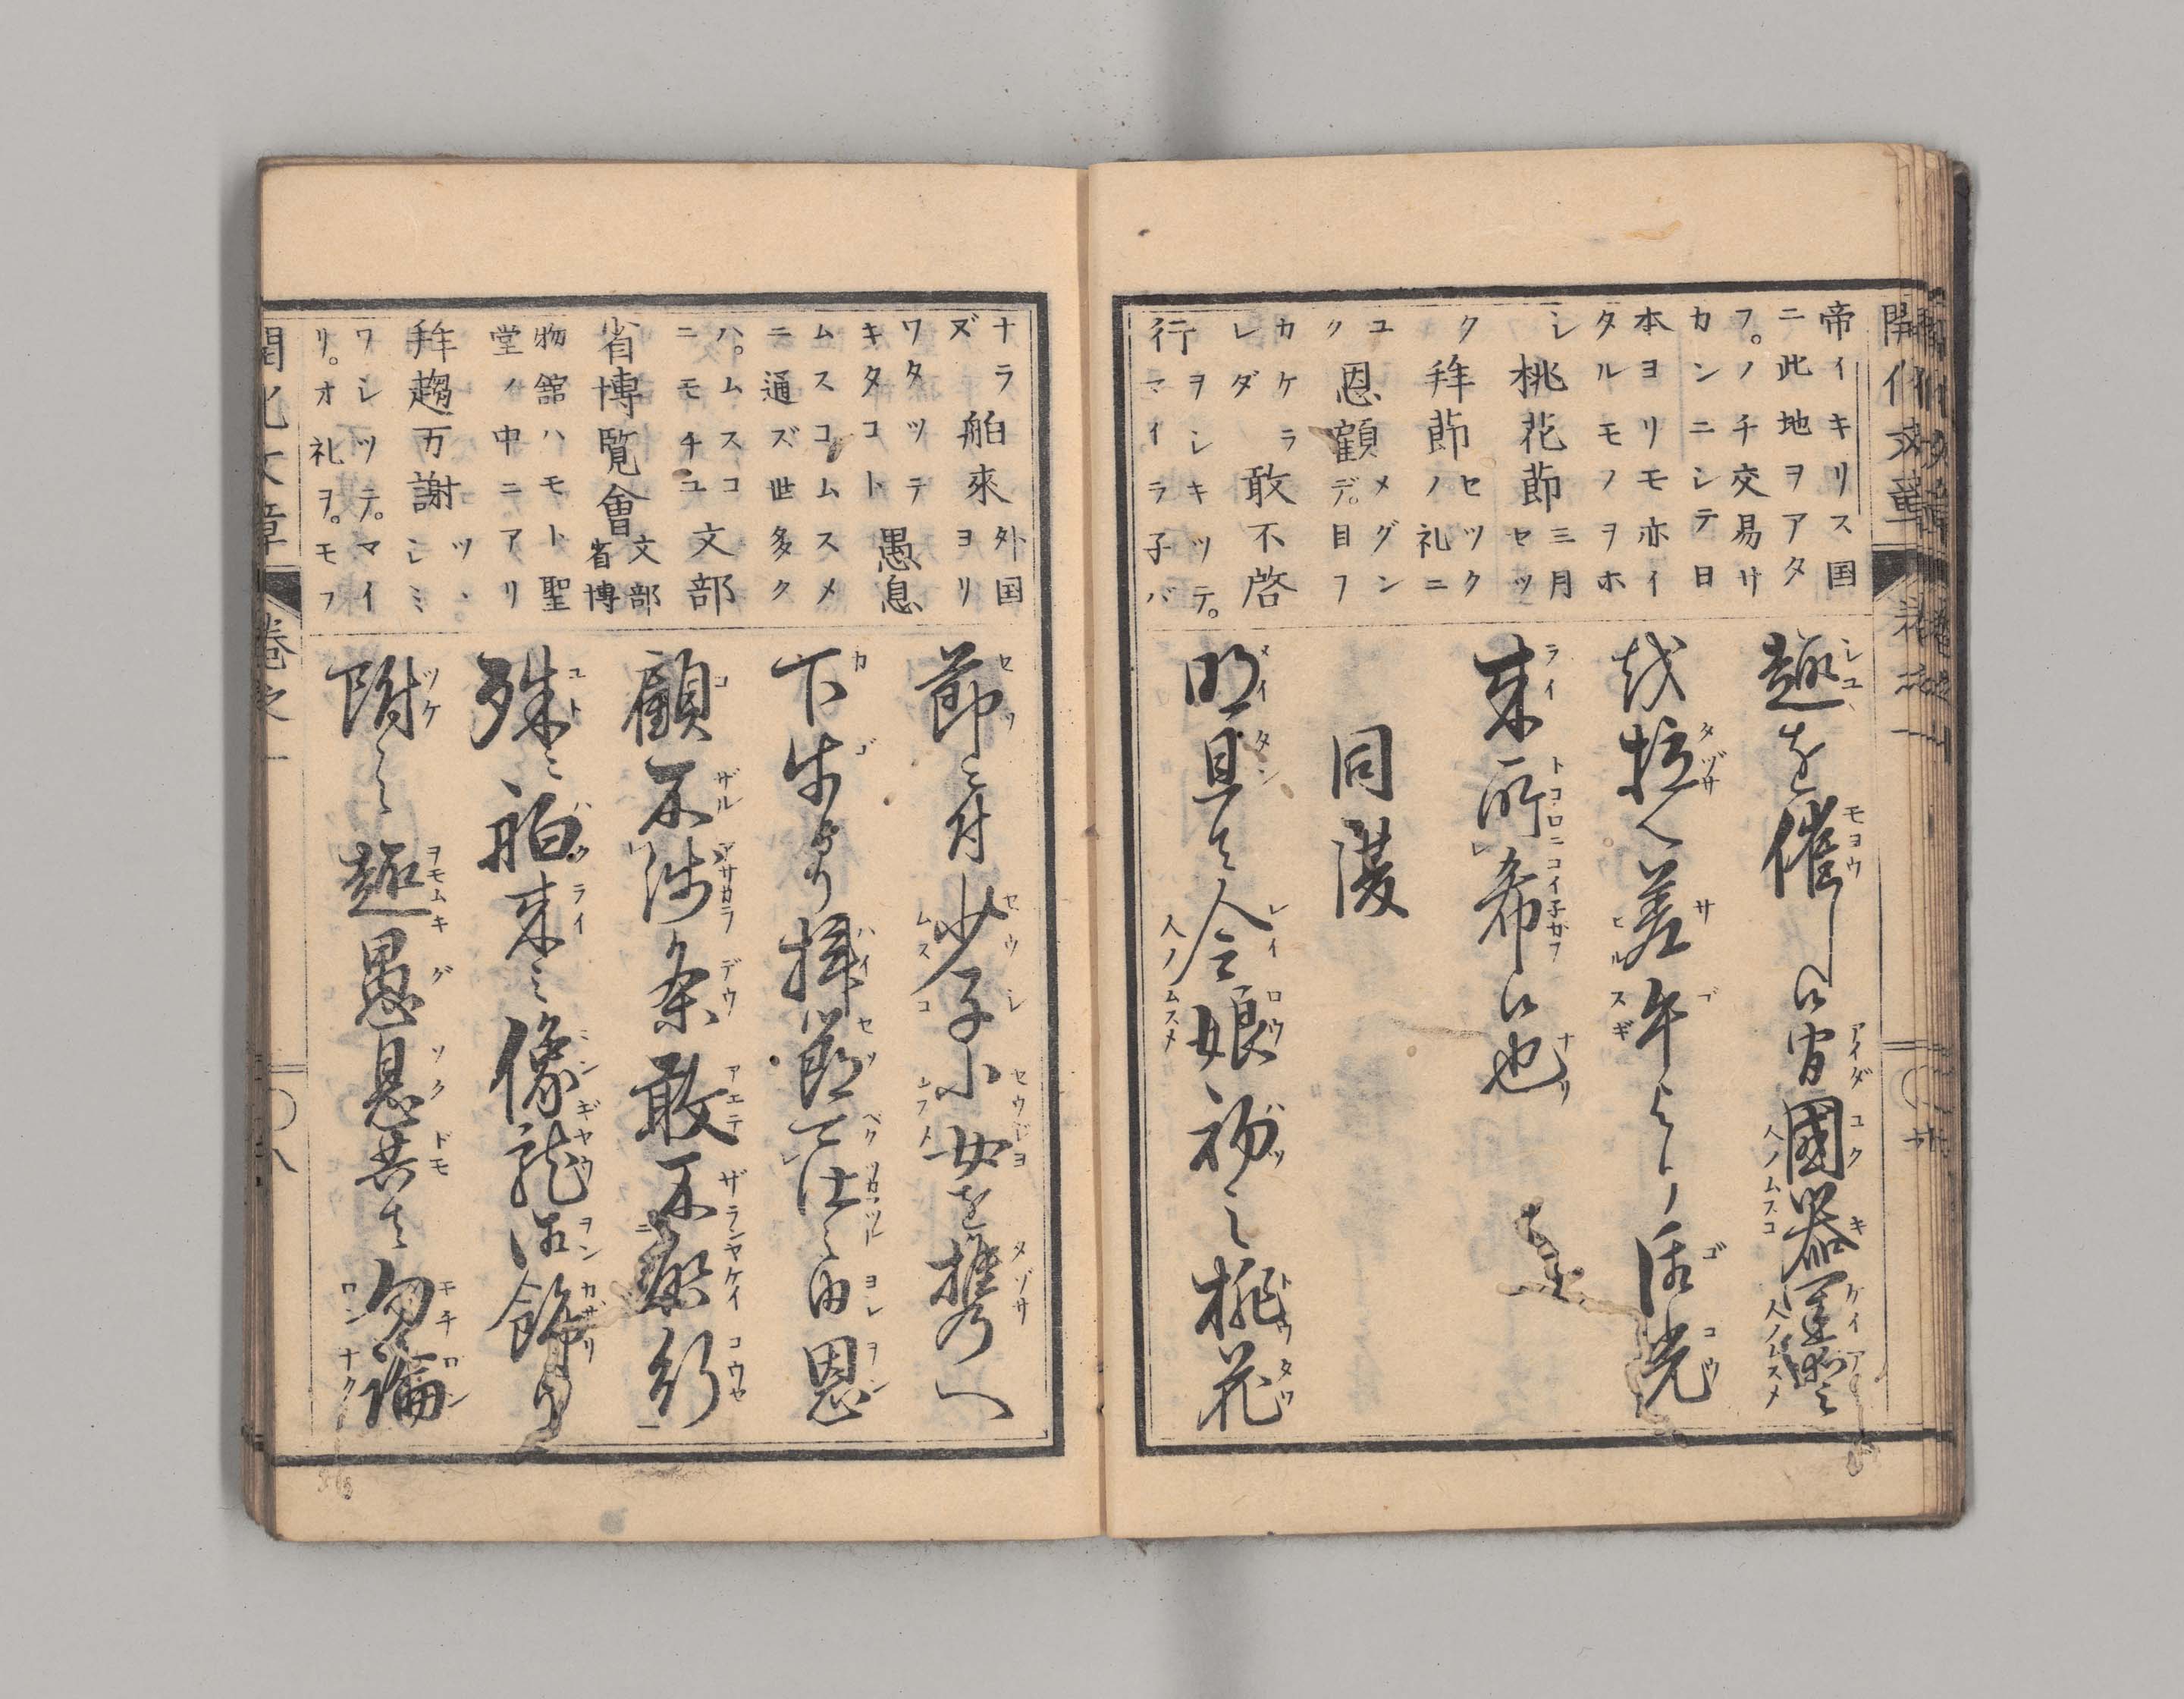 帝イキリス国
ニ此地ヲアタ
フ。ノチ交易サ
カンニシテ日
本ヨリモ亦イ
タルモノヲホ
シ 桃花節 三月セツ
ク 拜節 セツクノ礼ニ
ユク 恩顧 メグンデ。目フ
カケラレダ 敢不啓
ヲシキツテ。
行マイラ子バ
趣を催し候間國器運璧之
越拉へ差午より御光
来所希候也
同復
明旦は令娘初之桃花
ナラズ 舶來 外国ヨリ
ワタツテ
キタコト 愚息
ムスコムスメ
ニ通ズ世多ク
ハ。ムスコ
ニモチユ 文部
省博覧會 文部省博
物舘ハモト聖
堂ノ中ニアリ
拜趨万謝 ツヽシミ。
ワレツテ。マイ
リ。オ礼ヲ。モフ
節ニ付少子小女を携へ
下午より拝節可仕之由恩
顧不浅条敢不啓行
殊ニ舶来之像龍御飾り
附之趣愚息共は勿論
開化文章
卷之一